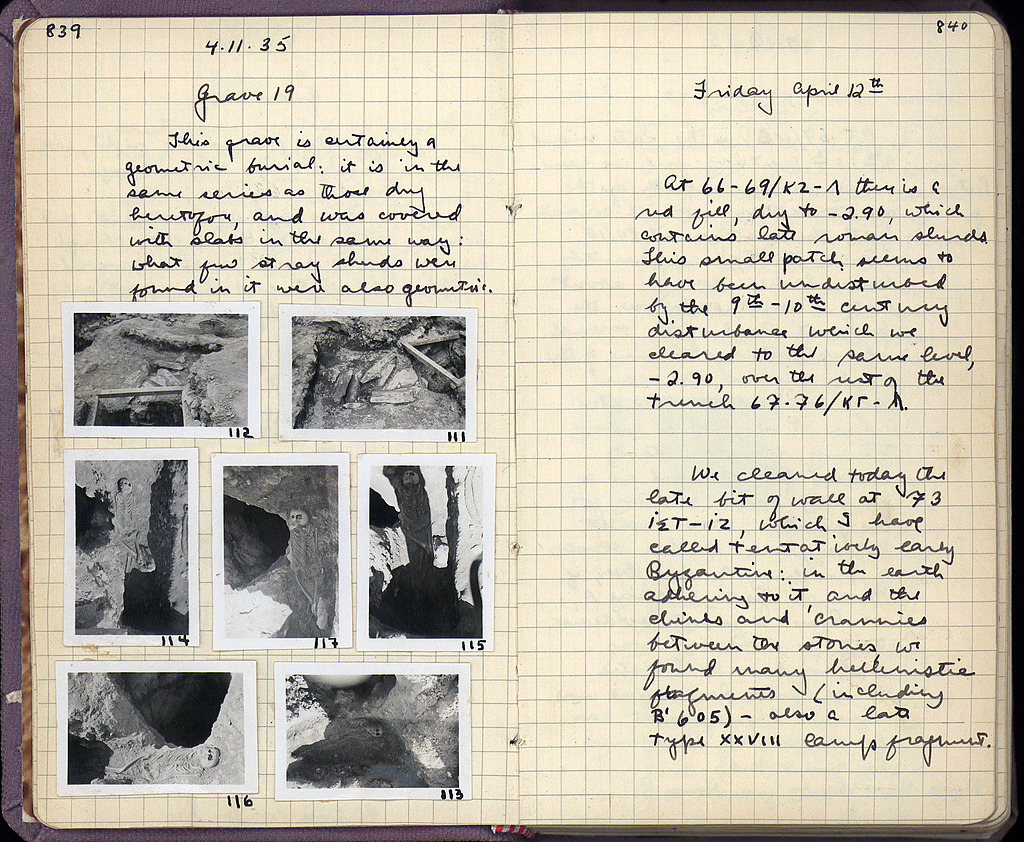 839
4.11.35
Grave 19
This grave is certainly a
geometric burial: it is in the
same series as those dug
heretofore, and was covered
with slabs in the same way:
what few stray sherds were
found in it were also geometric.
112
111
114
117
115
116
113
840
Friday April 12th
At 66-69/ΚΖ-Λ there is a
red fill, dug to -2.90, which
contains late roman sherds.
This small patch seems to
have been undisturbed
by the 9th-10th century
disturbance which we
cleared to the same level,
-2.90, over the rest of the
trench 67-76/ΚΓ-Λ.
We cleaned today the
late bit of wall at 73
which I have
called tentatively early
Byzantine: in the earth
adhering to it, and the
chinks and crannies
between the stones, we
found many hellenistic
fragments (including
B'605) - also a late
type XXVIII lamp fragment.